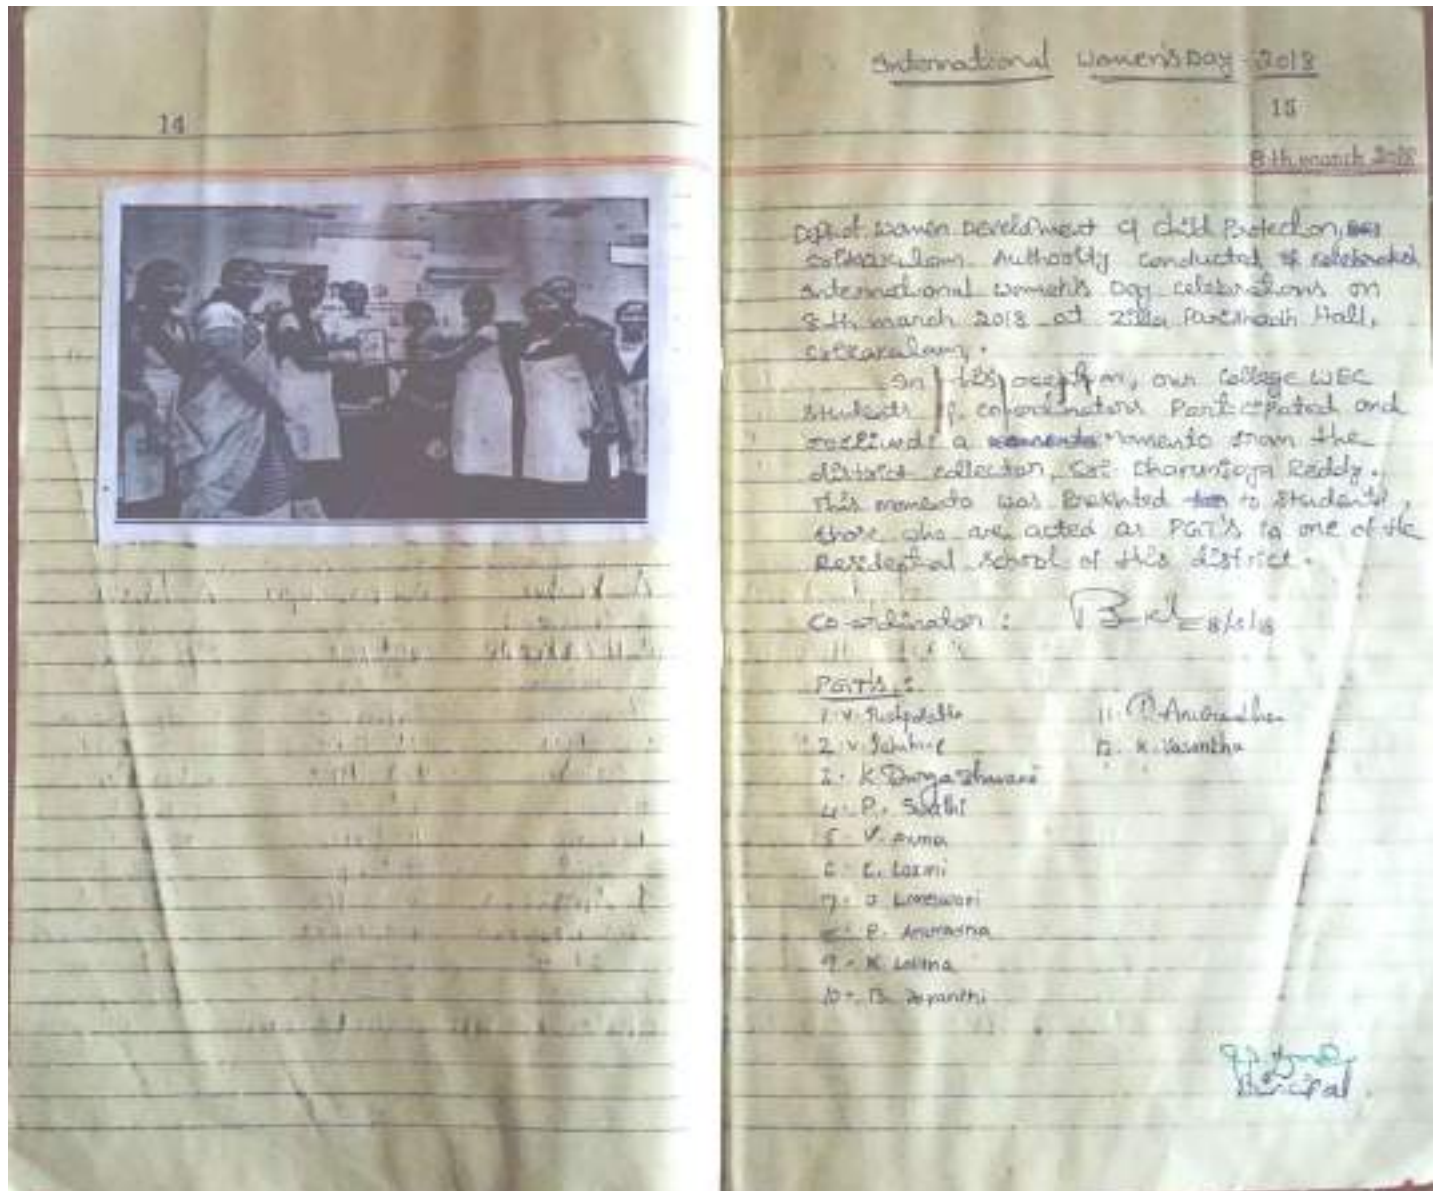 14
International Women's Day - 2018
15
8th march 2018
Dept of Women Development & Child Protection,
Srikakulam Authority conducted & celebrated
International women's Day celebrations on
8th march 2018 at Zilla Parishadh Hall,
Srikakulam.
In this occasion, our College WEC
Students & co-ordinators Participated and
a momento from the
district collector, Sri Dhanunjaya Reddy.
This momento was to students,
those who are acted as PGT's in one of the
Residential school of this district.
Co-ordinator : 8/3/18
PGT's :
1. V.
11. P. Anuradha
2. V.
12. K. Vasantha
3. K Durga Bhavani
4. P. Swathi
5. V.
6. L. Laxmi
7.
P.
9. K. Lalitha
10. B. Jayanthi
Principal